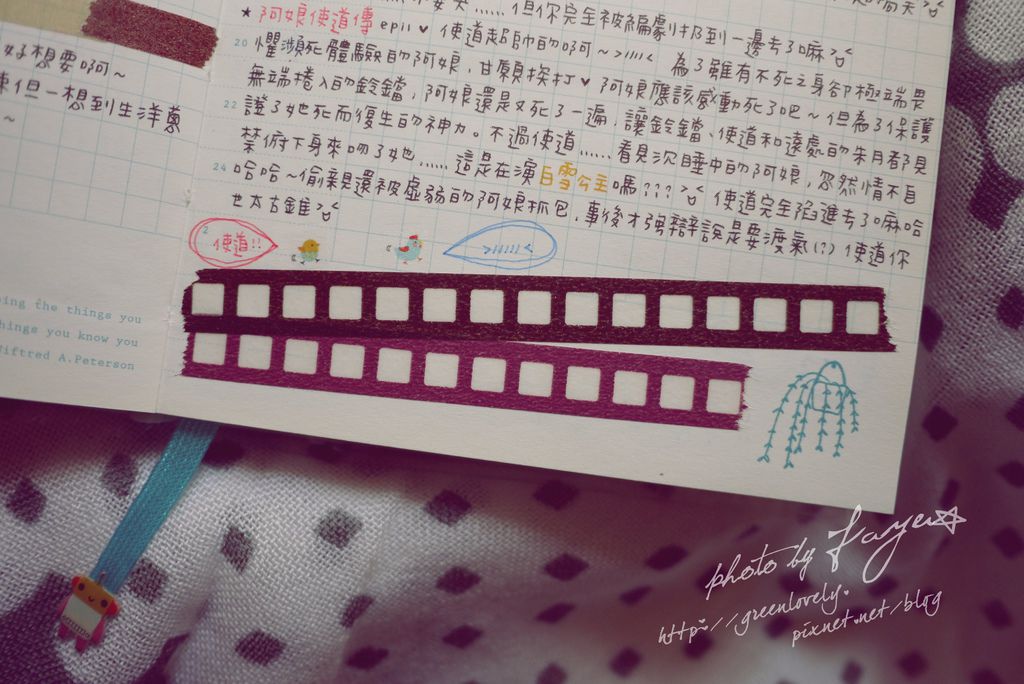 但你完全被編劇扔到一邊去了嘛
★ 阿娘使道傳 epii ♥ 使道超帥的啊~>//////< 為了雖有不死之身卻極端畏
20 懼瀕死體驗的阿娘,甘願挨打♥ 阿娘應該感動死了吧~但為了保護
無端捲入的鈴鐺,阿娘還是又死了一遍,讓鈴鐺、使道和遠處的朱月都見
22 證了她死而復生的神力。不過使道......看見沉睡中的阿娘,忽然情不自
禁俯下身來吻了她......這是在演白雪公主嗎??? 使道完全陷進去了嘛哈
24 哈哈~偷親還被虛弱的阿娘抓包,事後才強辯說是要渡氣(?) 使道你
也太古錐
使道!!
>//////<
好想要啊~
但一想到生洋蔥
~
ing the things you
things you know you
lftred A.Peterson
photo by Faye☆
http://greenlovely.
pixnet.net/blog